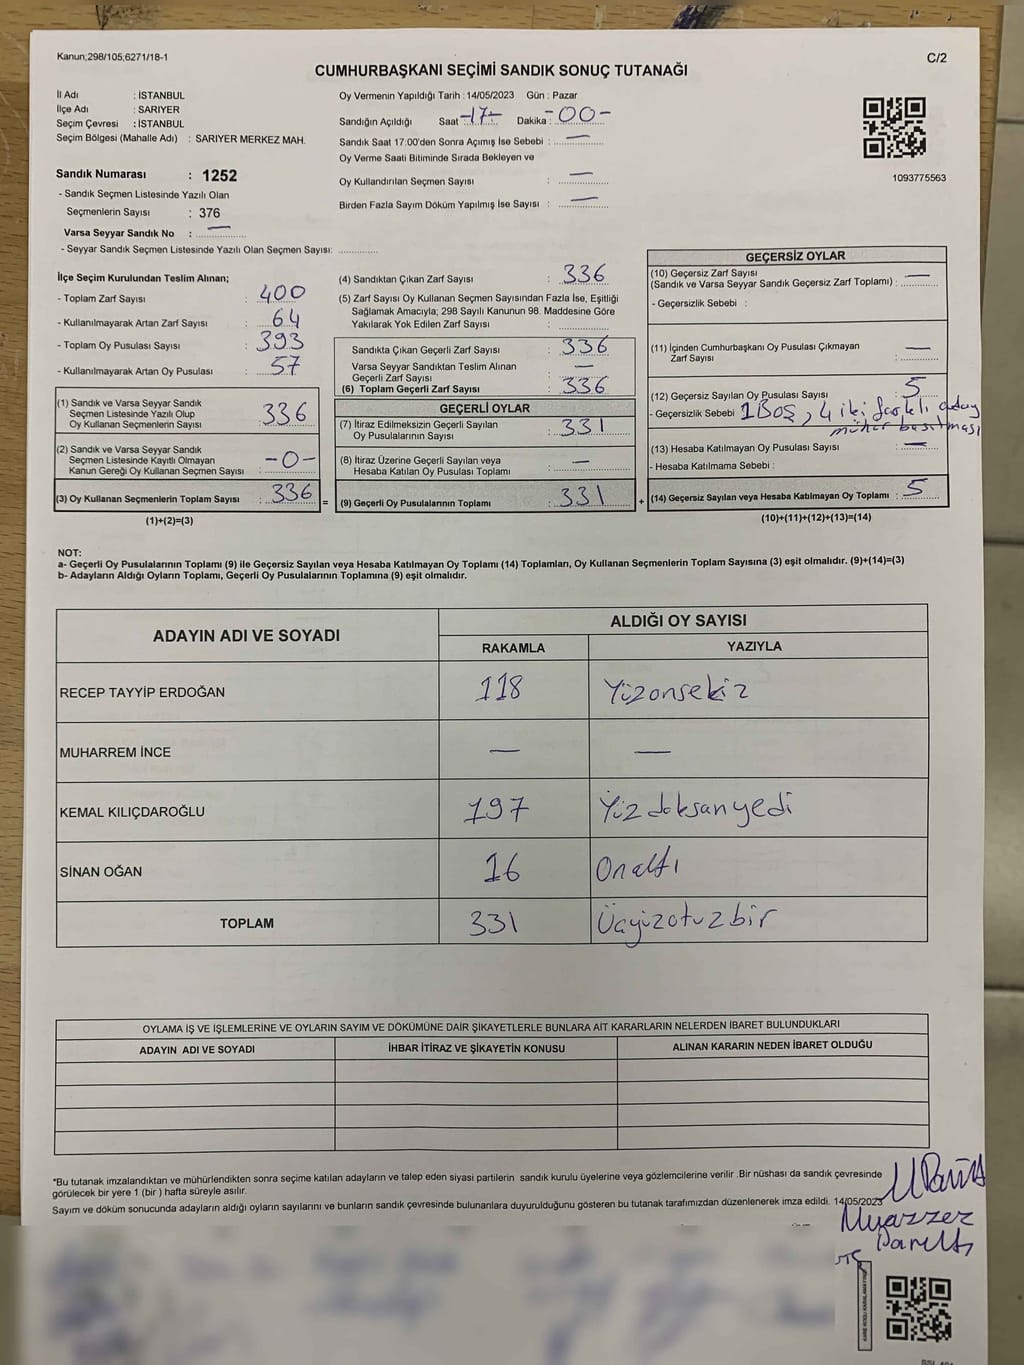 Kanun;298/105;6271/18-1
C/2
CUMHURBAŞKANI SEÇİMİ SANDIK SONUÇ TUTANAĞI
İl Adı : İSTANBUL
İlçe Adı : SARIYER
Seçim Çevresi : İSTANBUL
Seçim Bölgesi (Mahalle Adı) : SARIYER MERKEZ MAH.
Sandık Numarası : 1252
- Sandık Seçmen Listesinde Yazılı Olan
Seçmenlerin Sayısı : 376
Varsa Seyyar Sandık No : —
- Seyyar Sandık Seçmen Listesinde Yazılı Olan Seçmen Sayısı: ............
Oy Vermenin Yapıldığı Tarih : 14/05/2023 Gün : Pazar
Sandığın Açıldığı Saat -17- Dakika : -00-
Sandık Saat 17:00'den Sonra Açımış İse Sebebi : —
Oy Verme Saati Bitiminde Sırada Bekleyen ve
Oy Kullandırılan Seçmen Sayısı : —
Birden Fazla Sayım Döküm Yapılmış İse Sayısı : —
1093775563
İlçe Seçim Kurulundan Teslim Alınan;
- Toplam Zarf Sayısı : 400
- Kullanılmayarak Artan Zarf Sayısı : 64
- Toplam Oy Pusulası Sayısı : 393
- Kullanılmayarak Artan Oy Pusulası : 57
(1) Sandık ve Varsa Seyyar Sandık
Seçmen Listesinde Yazılı Olup
Oy Kullanan Seçmenlerin Sayısı : 336
(2) Sandık ve Varsa Seyyar Sandık
Seçmen Listesinde Kayıtlı Olmayan
Kanun Gereği Oy Kullanan Seçmen Sayısı : -0-
(3) Oy Kullanan Seçmenlerin Toplam Sayısı : 336 =
(1)+(2)=(3)
(4) Sandıktan Çıkan Zarf Sayısı : 336
(5) Zarf Sayısı Oy Kullanan Seçmen Sayısından Fazla İse, Eşitliği
Sağlamak Amacıyla; 298 Sayılı Kanunun 98. Maddesine Göre
Yakılarak Yok Edilen Zarf Sayısı :
Sandıkta Çıkan Geçerli Zarf Sayısı : 336
Varsa Seyyar Sandıktan Teslim Alınan
Geçerli Zarf Sayısı : —
(6) Toplam Geçerli Zarf Sayısı : 336
GEÇERLİ OYLAR
(7) İtiraz Edilmeksizin Geçerli Sayılan
Oy Pusulalarının Sayısı : 331
(8) İtiraz Üzerine Geçerli Sayılan veya
Hesaba Katılan Oy Pusulası Toplamı : —
(9) Geçerli Oy Pusulalarının Toplamı : 331 +
GEÇERSİZ OYLAR
(10) Geçersiz Zarf Sayısı
(Sandık ve Varsa Seyyar Sandık Geçersiz Zarf Toplamı) : —
- Geçersizlik Sebebi :
(11) İçinden Cumhurbaşkanı Oy Pusulası Çıkmayan
Zarf Sayısı : —
(12) Geçersiz Sayılan Oy Pusulası Sayısı : 5
- Geçersizlik Sebebi 1 Boş, 4 iki farklı aday
mühür basılması
(13) Hesaba Katılmayan Oy Pusulası Sayısı : —
- Hesaba Katılmama Sebebi :
(14) Geçersiz Sayılan veya Hesaba Katılmayan Oy Toplamı : 5
(10)+(11)+(12)+(13)=(14)
NOT:
a- Geçerli Oy Pusulalarının Toplamı (9) ile Geçersiz Sayılan veya Hesaba Katılmayan Oy Toplamı (14) Toplamları, Oy Kullanan Seçmenlerin Toplam Sayısına (3) eşit olmalıdır. (9)+(14)=(3)
b- Adayların Aldığı Oyların Toplamı, Geçerli Oy Pusulalarının Toplamına (9) eşit olmalıdır.
ADAYIN ADI VE SOYADI
ALDIĞI OY SAYISI
RAKAMLA YAZIYLA
RECEP TAYYİP ERDOĞAN 118 Yüzonsekiz
MUHARREM İNCE — —
KEMAL KILIÇDAROĞLU 197 Yüz doksan yedi
SİNAN OĞAN 16 Onaltı
TOPLAM 331 Üçyüzotuzbir
OYLAMA İŞ VE İŞLEMLERİNE VE OYLARIN SAYIM VE DÖKÜMÜNE DAİR ŞİKAYETLERLE BUNLARA AİT KARARLARIN NELERDEN İBARET BULUNDUKLARI
ADAYIN ADI VE SOYADI İHBAR İTİRAZ VE ŞİKAYETİN KONUSU ALINAN KARARIN NEDEN İBARET OLDUĞU
*Bu tutanak imzalandıktan ve mühürlendikten sonra seçime katılan adayların ve talep eden siyasi partilerin sandık kurulu üyelerine veya gözlemcilerine verilir .Bir nüshası da sandık çevresinde
görülecek bir yere 1 (bir ) hafta süreyle asılır.
Sayım ve döküm sonucunda adayların aldığı oyların sayılarını ve bunların sandık çevresinde bulunanlara duyurulduğunu gösteren bu tutanak tarafımızdan düzenlenerek imza edildi. 14/05/2023
Muazzez